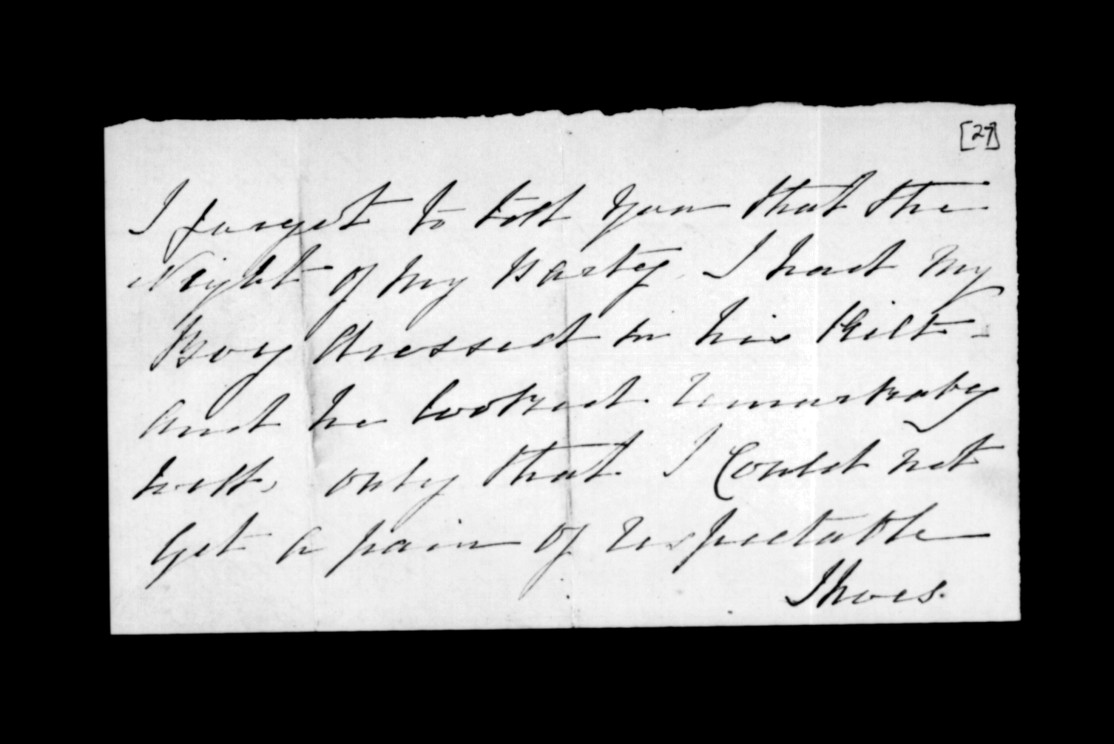 [27]
I forget to tell you that the
Night of my Party, I had my
Boy dressed in his Kilt -
and he looked remarkaby
well, only that I could not
get a pair of respectable
Shoes.